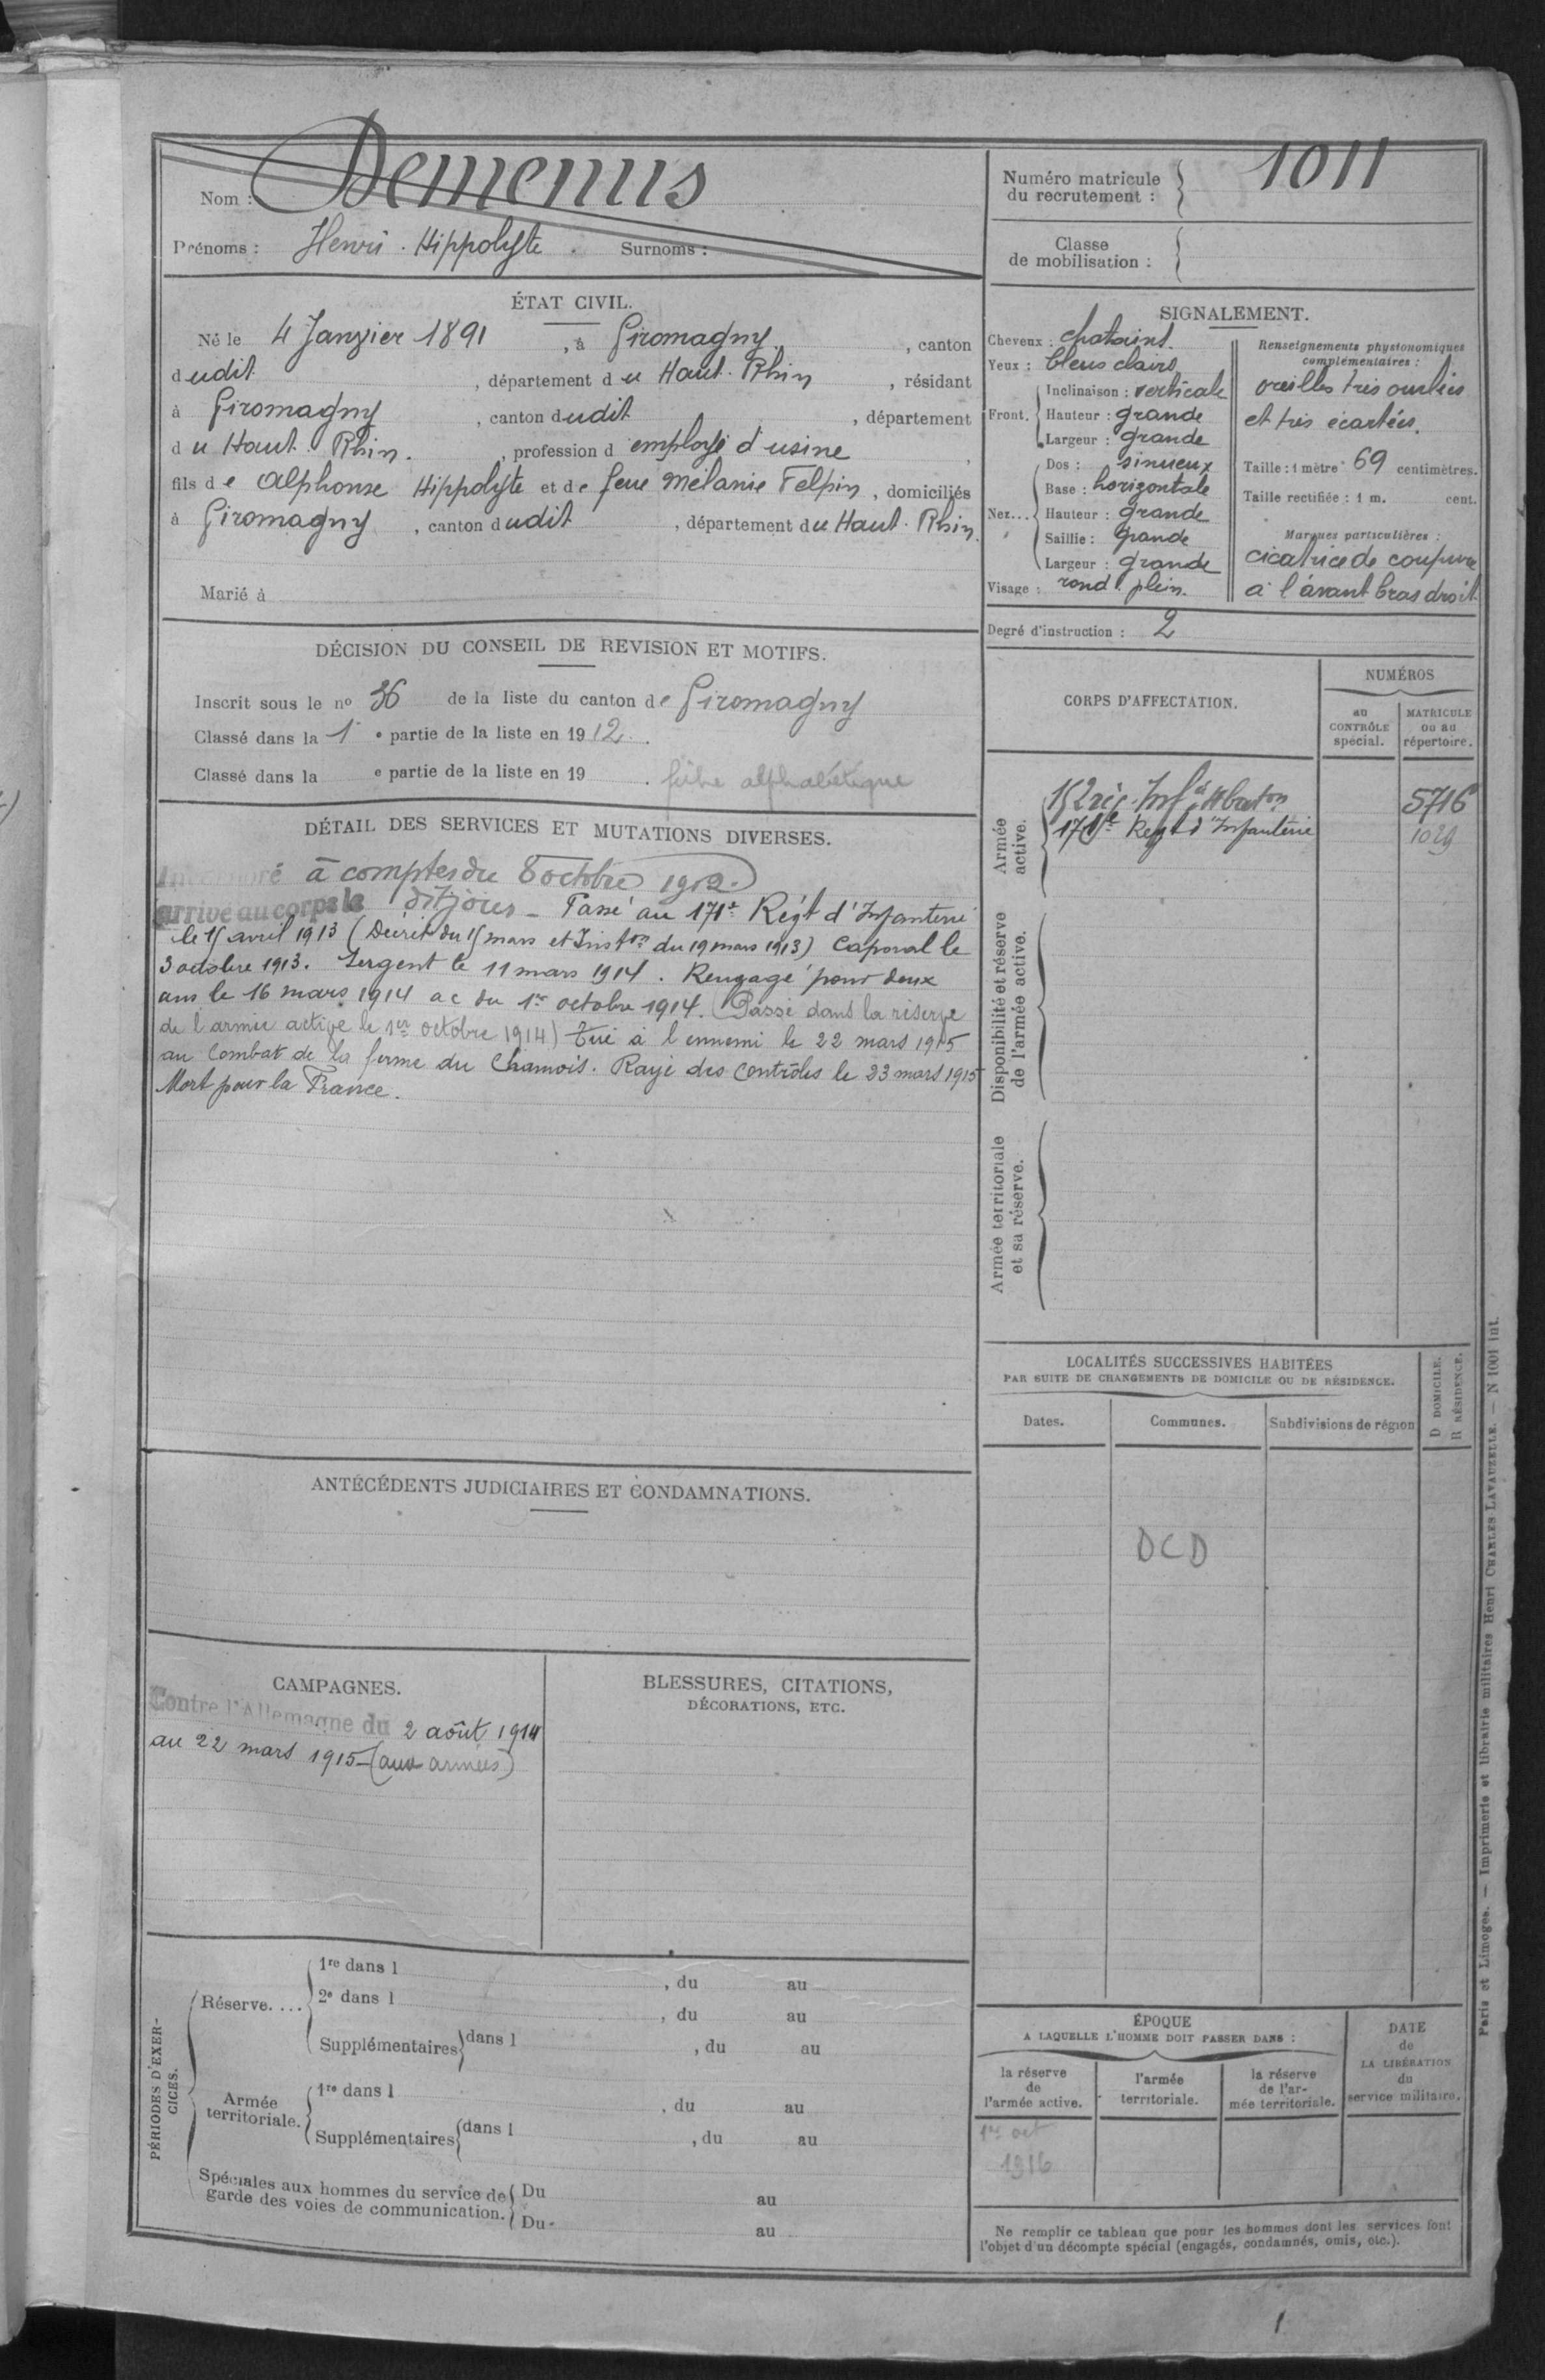 Nom : Demenus
Prénoms : Henri. Hippolyte. Surnoms :
Numéro matricule du recrutement : 1011
Classe de mobilisation :
ÉTAT CIVIL.
Né le 4 Janvier 1891, à Giromagny, canton
dudit, département du Haut-Rhin, résidant
à Giromagny, canton dudit, département
du Haut-Rhin., profession d employé d'usine,
fils de Alphonse Hippolyte et de feue Mélanie Felpin, domiciliés
à Giromagny, canton dudit, département du Haut-Rhin.
Marié à
SIGNALEMENT.
Cheveux : chatains.
Yeux : bleus clairs
Front. Inclinaison : verticale
Hauteur : grande
Largeur : grande
Nez... Dos : sinueux
Base : horizontale
Hauteur : grande
Saillie : grande
Largeur : grande
Visage : rond plein.
Renseignements physionomiques complémentaires :
oreilles très ourlées
et très écartées.
Taille : 1 mètre 69 centimètres.
Taille rectifiée : 1 m. cent.
Marques particulières :
cicatrice de coupure
à l'avant bras droit
Degré d'instruction : 2
DÉCISION DU CONSEIL DE REVISION ET MOTIFS.
Inscrit sous le no 36 de la liste du canton de Giromagny
Classé dans la 1e partie de la liste en 1912.
Classé dans la e partie de la liste en 19 .
fiche alphabétique
DÉTAIL DES SERVICES ET MUTATIONS DIVERSES.
Incorporé à compter du 8 octobre 1912.
arrivé au corps le dit jour - Passé au 171e Régt d'Infanterie
le 15 avril 1913 (Décret du 15 mars et Inston du 19 mars 1913) Caporal le
3 octobre 1913. Sergent le 11 mars 1914. Rengagé pour deux
ans le 16 mars 1914 ac du 1er octobre 1914. (Passé dans la réserve
de l'armée active le 1er octobre 1914) Tué à l'ennemi le 22 mars 1915
au Combat de la ferme du Chamois. Rayé des contrôles le 23 mars 1915
Mort pour la France.
CORPS D'AFFECTATION.
NUMÉROS
au CONTRÔLE spécial.
MATRICULE ou au répertoire.
Armée active.
152 rég. Infie 5716
171e Regt d'Infanterie 1029
Disponibilité et réserve de l'armée active.
Armée territoriale et sa réserve.
LOCALITÉS SUCCESSIVES HABITÉES
PAR SUITE DE CHANGEMENTS DE DOMICILE OU DE RÉSIDENCE.
Dates.
Communes.
Subdivisions de région
D DOMICILE.
R RÉSIDENCE.
DCD
ANTÉCÉDENTS JUDICIAIRES ET CONDAMNATIONS.
CAMPAGNES.
Contre l'Allemagne du 2 août 1914
au 22 mars 1915 - (aux armées)
BLESSURES, CITATIONS,
DÉCORATIONS, ETC.
PÉRIODES D'EXERCICES.
Réserve.... 1re dans l , du au
2e dans l , du au
Supplémentaires dans l , du au
Armée territoriale. 1re dans l , du au
Supplémentaires dans l , du au
Spéciales aux hommes du service de garde des voies de communication. Du au
Du au
ÉPOQUE
A LAQUELLE L'HOMME DOIT PASSER DANS :
la réserve de l'armée active.
l'armée territoriale.
la réserve de l'armée territoriale.
DATE de LA LIBÉRATION du service militaire.
1er oct
1916
Ne remplir ce tableau que pour les hommes dont les services font
l'objet d'un décompte spécial (engagés, condamnés, omis, etc.).
Paris et Limoges. — Imprimerie et librairie militaires Henri CHARLES LAVAUZELLE. — N 1001 int.
1